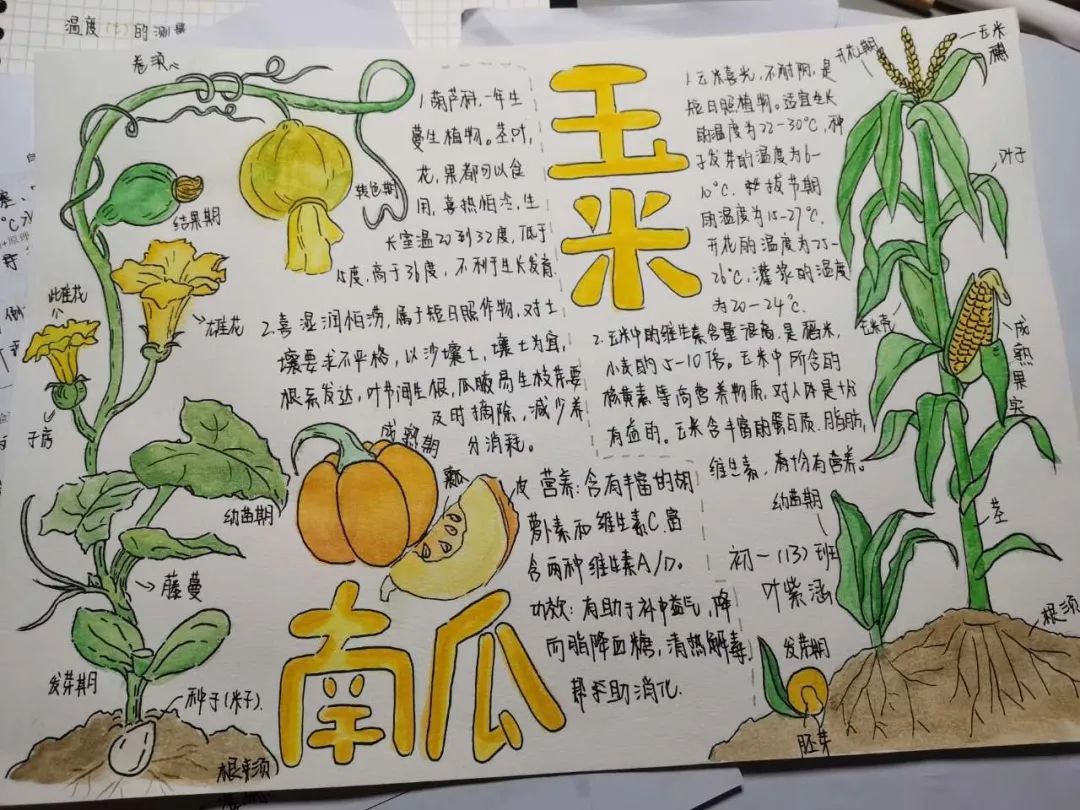 温度(℃)的测量
卷须
结果期
转色期
雌花
雄花
子房
幼苗期
藤蔓
发芽期
种子(米子)
根系须
1.葫芦科,一年生
蔓生植物。茎叶,
花,果都可以食
用,喜热怕冷,生
长室温20到32度,低于
15度,高于36度,不利于生长发育.
2.喜湿润怕涝,属于短日照作物,对土
壤要求不严格,以沙壤土,壤土为宜,
根系发达,叶节间生根,瓜腋易生枝芽要
及时摘除,减少养
分消耗。
成熟期
瓤
皮
南瓜
营养:含有丰富的胡
萝卜素和维生素C.富
含两种维生素A/D。
功效:有助于补中益气,降
血脂降血糖,清热解毒,
帮助消化.
玉米
1.玉米喜光,不耐阴,是
短日照植物。适宜生长
的温度为22-30℃,种
子发芽的温度为6-
10℃.拔节期
的温度为15-27℃.
开花的温度为25-
26℃,灌浆的温度
为20-24℃.
2.玉米中的维生素含量很高,是稻米,
小麦的5-10倍。玉米中所含的
核黄素等高营养物质,对人体是十分
有益的。玉米含丰富的蛋白质.脂肪,
维生素,有营养。
初一(13)班
叶紫涵
开花期
玉米
叶子
玉米壳
成熟果实
茎
幼苗期
根须
发芽期
胚芽